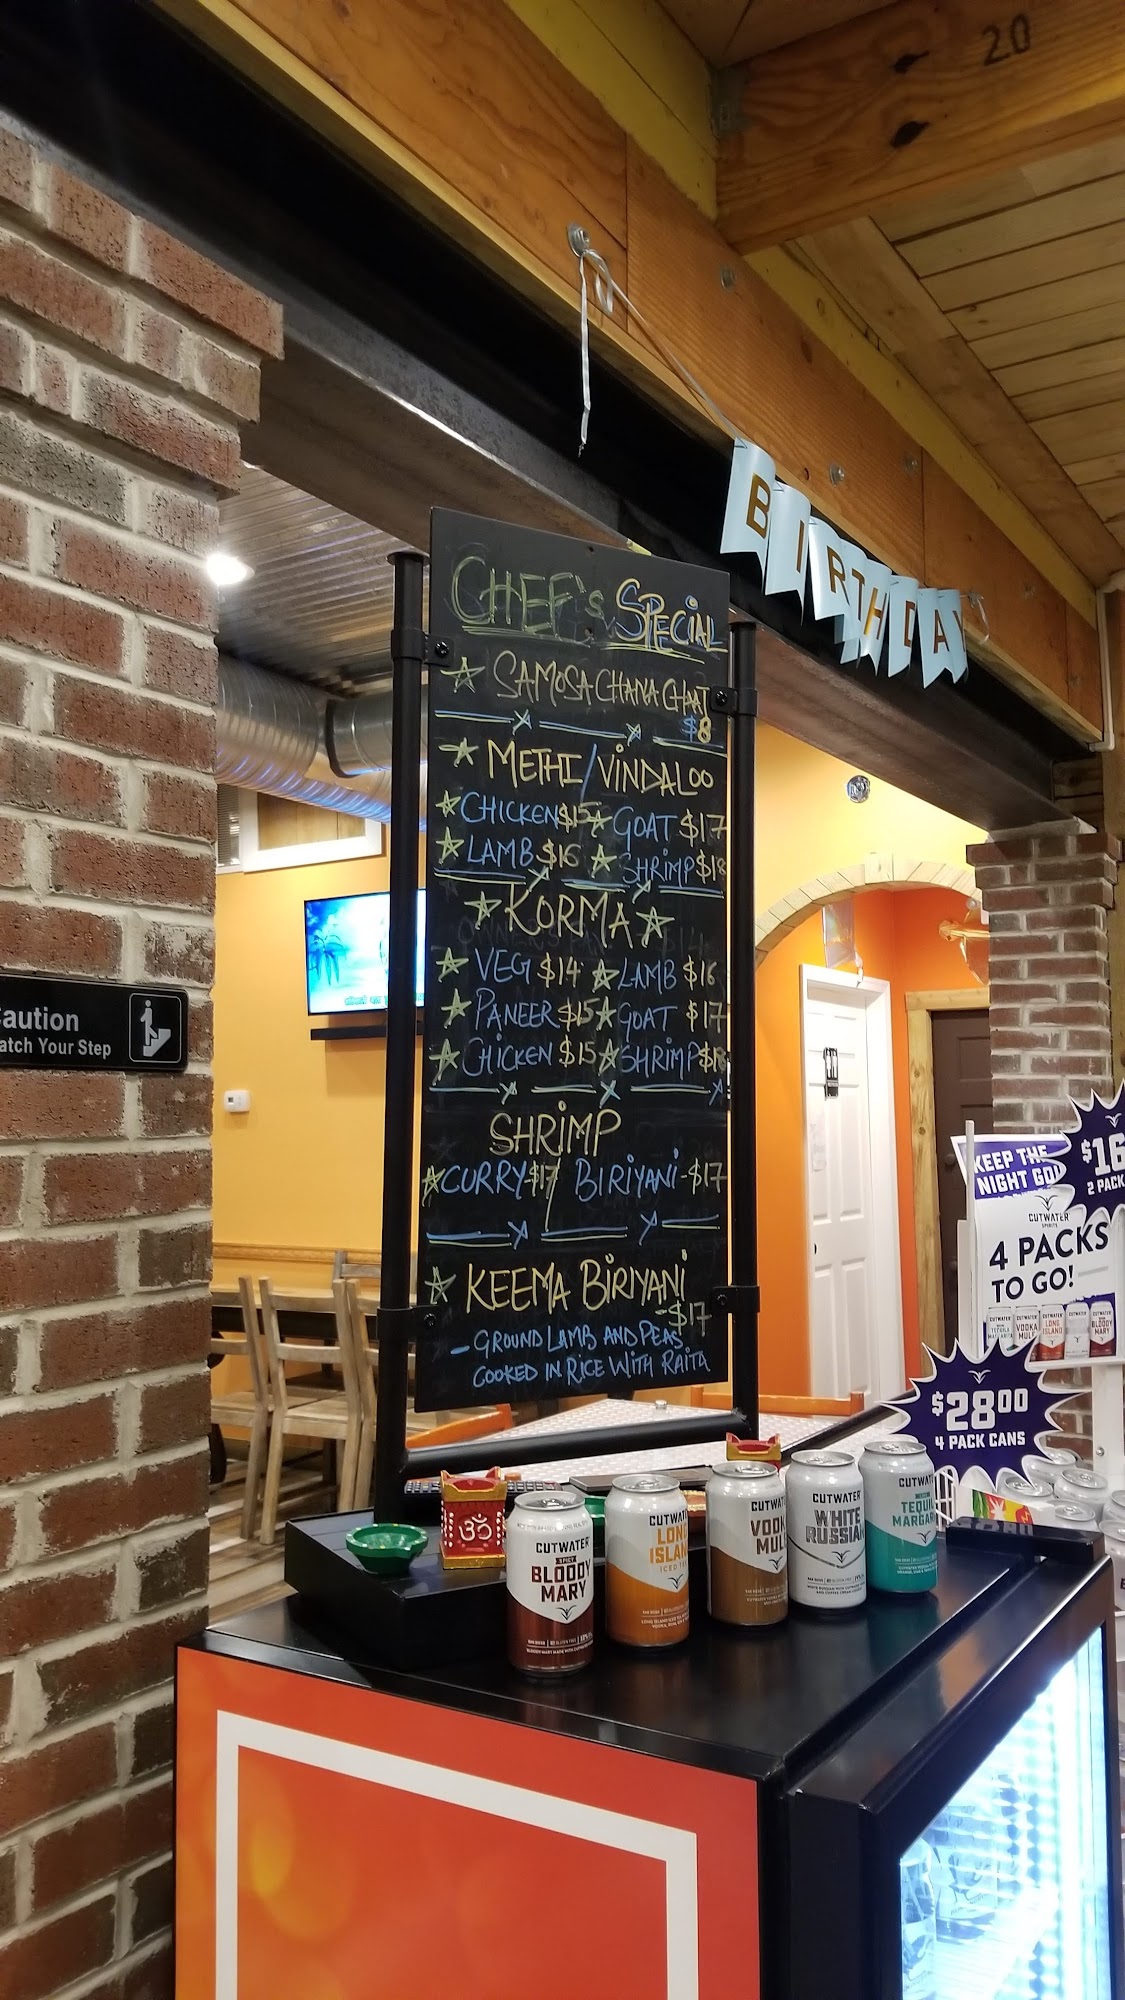 20
BIRTHDAY
CHEF's SPECIAL
SAMOSA CHANA CHAAT
$8
METHI/VINDALOO
CHICKEN $15 GOAT $17
LAMB $16 SHRIMP $18
KORMA
VEG $14 LAMB $16
PANEER $15 GOAT $17
CHICKEN $15 SHRIMP $18
SHRIMP
CURRY $17 BIRIYANI - $17
KEEMA BIRIYANI
- $17
- GROUND LAMB AND PEAS
COOKED IN RICE WITH RAITA
Caution
Watch Your Step
KEEP THE
NIGHT GO
$16
2 PACK
CUTWATER
SPIRITS
4 PACKS
TO GO!
$28.00
4 PACK CANS
CUTWATER
SPICY
BLOODY
MARY
CUTWATER
LONG
ISLAN
ICED
CUTWAT
VODK
MUL
CUTWATER
WHITE
RUSSIAN
CUTWAT
TEQUI
MARGAR
ॐ